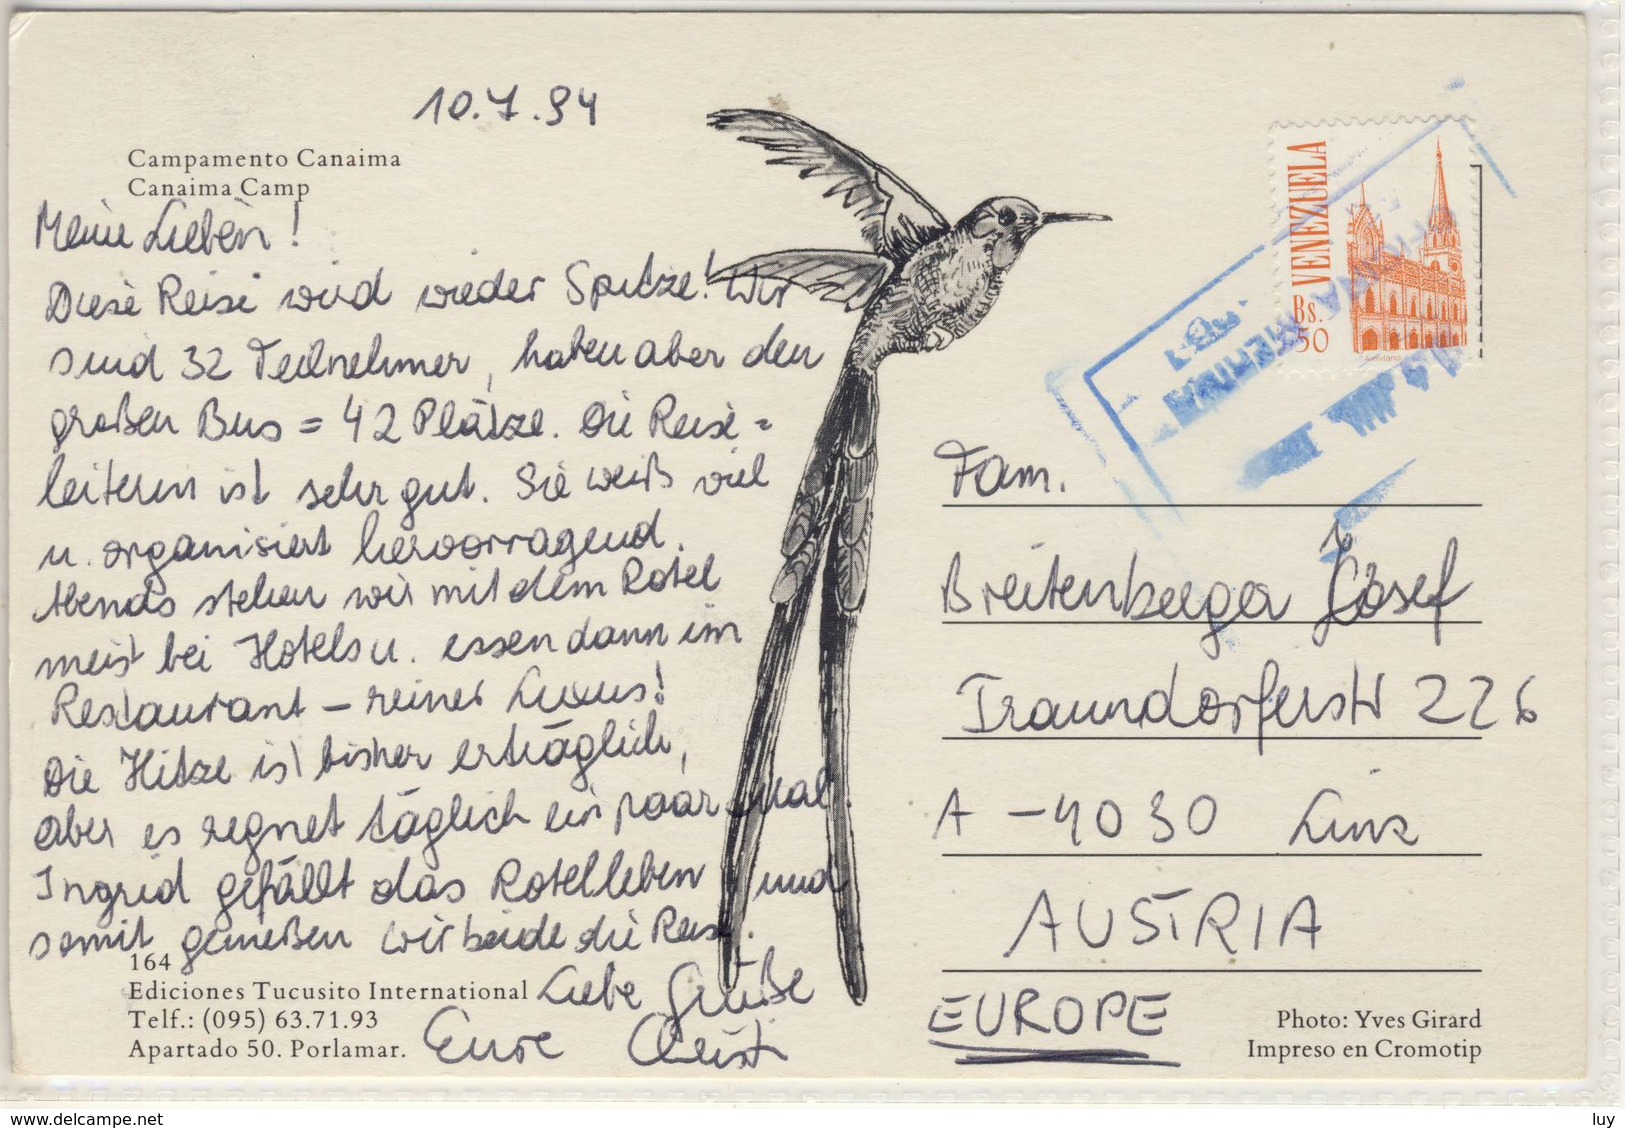 10.7.94
Campamento Canaima
Canaima Camp
Meine Lieben!
Diese Reise wird wieder Spitze! Wir
sind 32 Teilnehmer, haben aber den
großen Bus = 42 Plätze. Die Reise=
leiterin ist sehr gut. Sie weiß viel
u. organisiert hervorragend.
Abends stehen wir mit dem Rotel
meist bei Hotels u. essen dann im
Restaurant – reiner Luxus!
Die Hitze ist bisher erträglich,
aber es regnet täglich ein paar mal.
Ingrid gefällt das Rotelleben und
somit genießen wir beide die Reise.
Liebe Grüße
Eure
164
Ediciones Tucusito International
Telf.: (095) 63.71.93
Apartado 50. Porlamar.
VENEZUELA
Bs.
50
Fam.
Breitenberger Josef
Traundorferstr 226
A - 4030 Linz
AUSTRIA
EUROPE
Photo: Yves Girard
Impreso en Cromotip
www.delcampe.net
luy